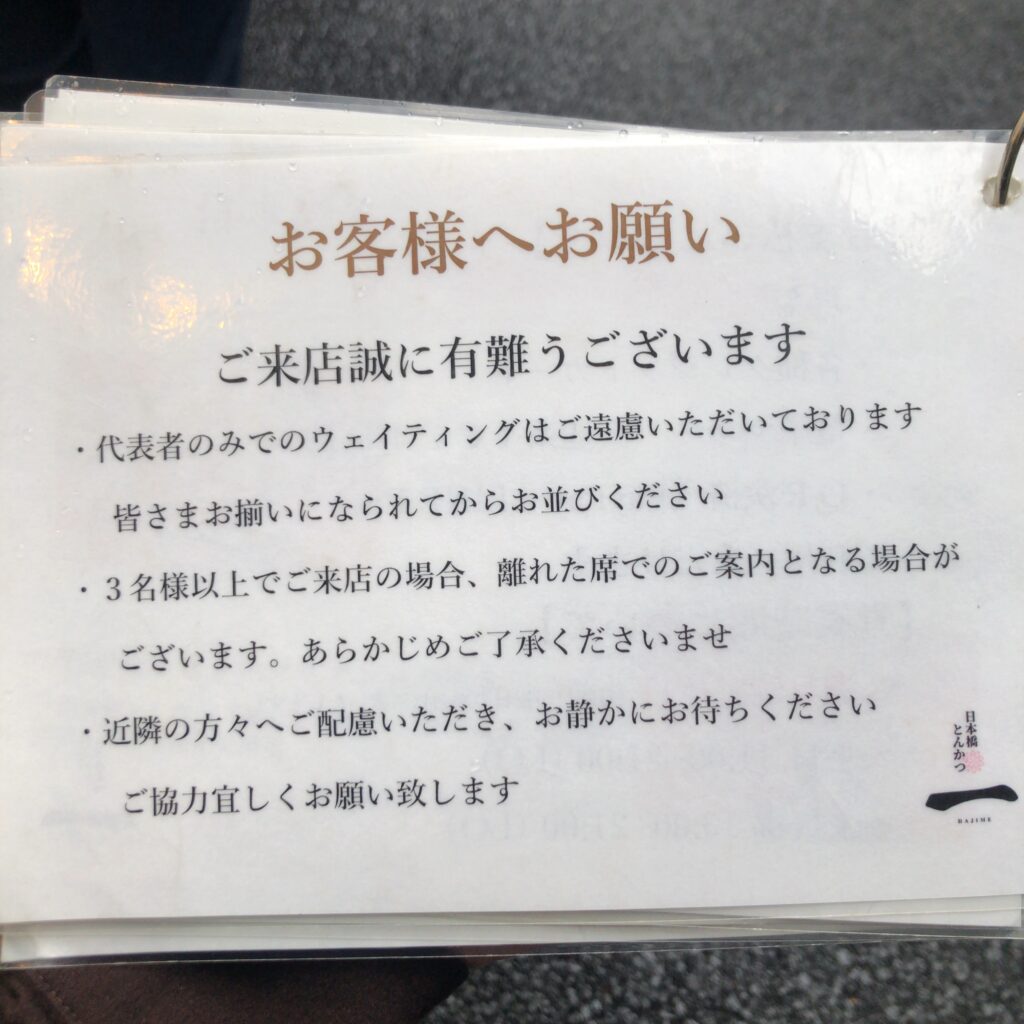 お客様へお願い
ご来店誠に有難うございます
・代表者のみでのウェイティングはご遠慮いただいております
皆さまお揃いになられてからお並びください
・３名様以上でご来店の場合、離れた席でのご案内となる場合が
ございます。あらかじめご了承くださいませ
・近隣の方々へご配慮いただき、お静かにお待ちください
ご協力宜しくお願い致します
日本橋
とんかつ
一
HAJIME